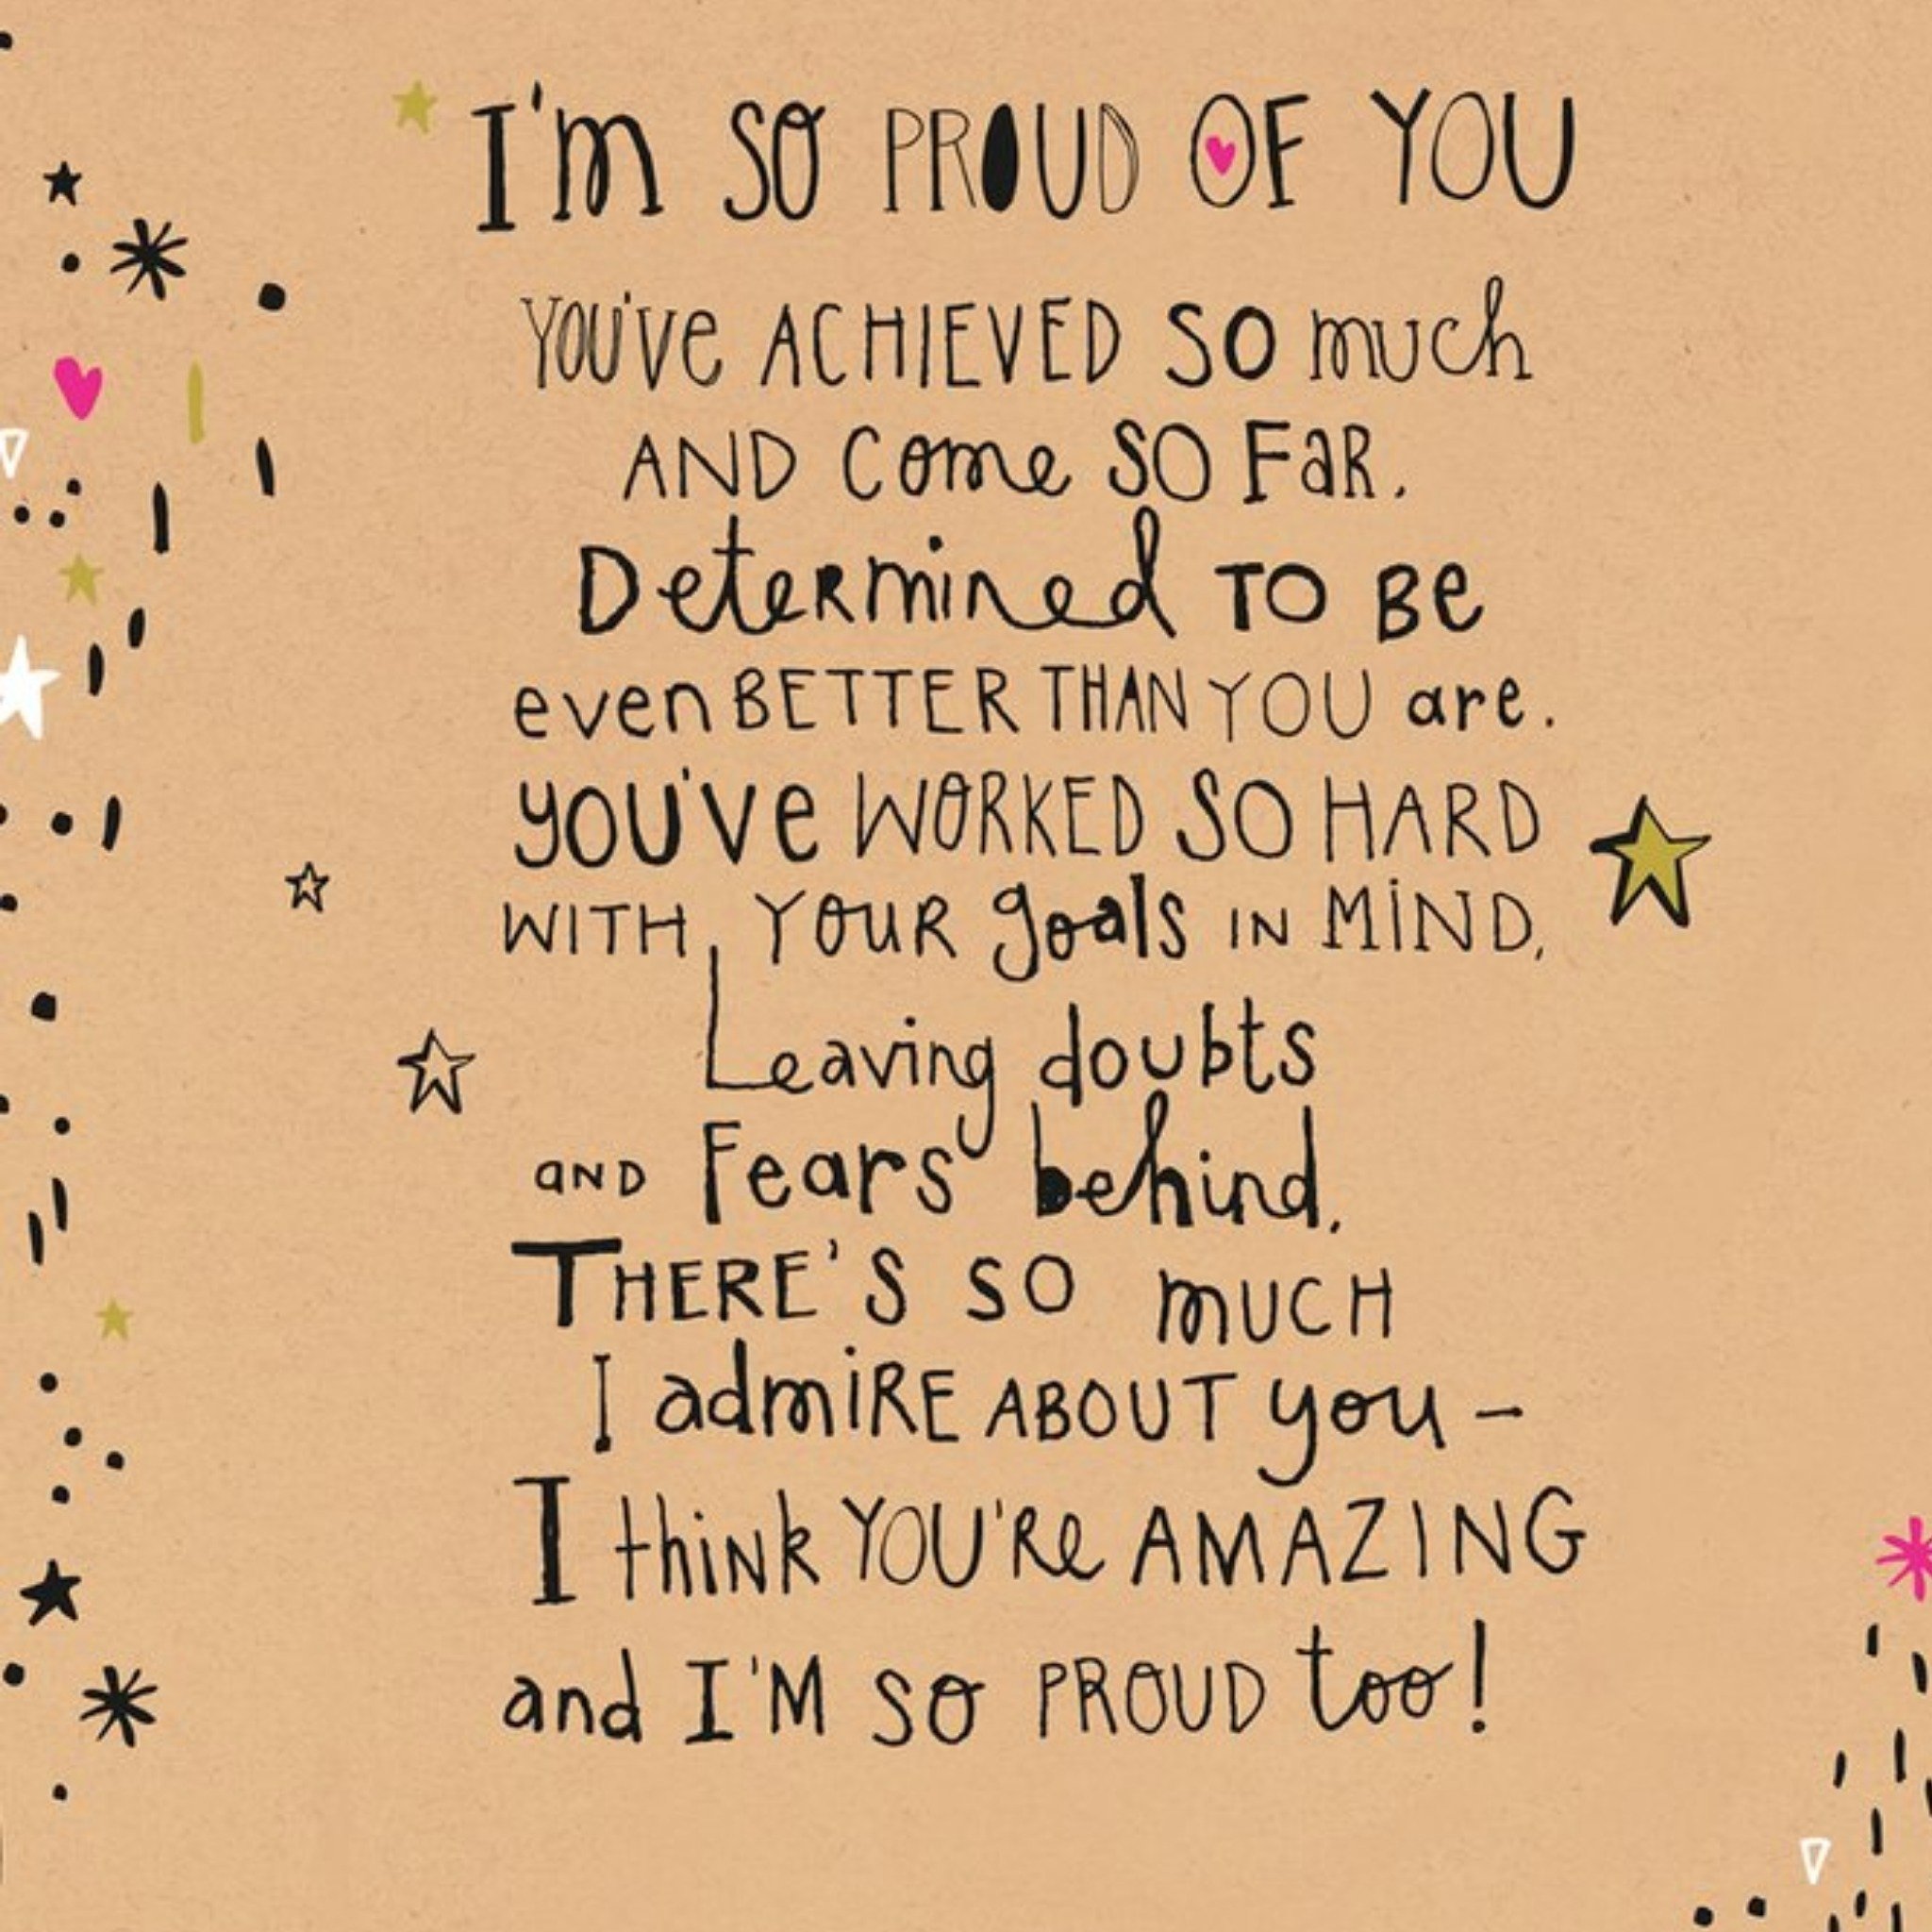 I'm SO PROUD OF YOU
YOU'VE ACHIEVED SO much
AND COme SO FaR.
DeteRmined TO Be
even BETTER THAN YOU are.
YOU'Ve WORKED SO HARD
WITH YOUR goals IN MiND,
Leaving doubts
aND Fears behind.
THERE'S SO mUCH
I admiRE ABOUT you -
I thiNk YOU'Re AMAZING
and I'M SO PROUD too!